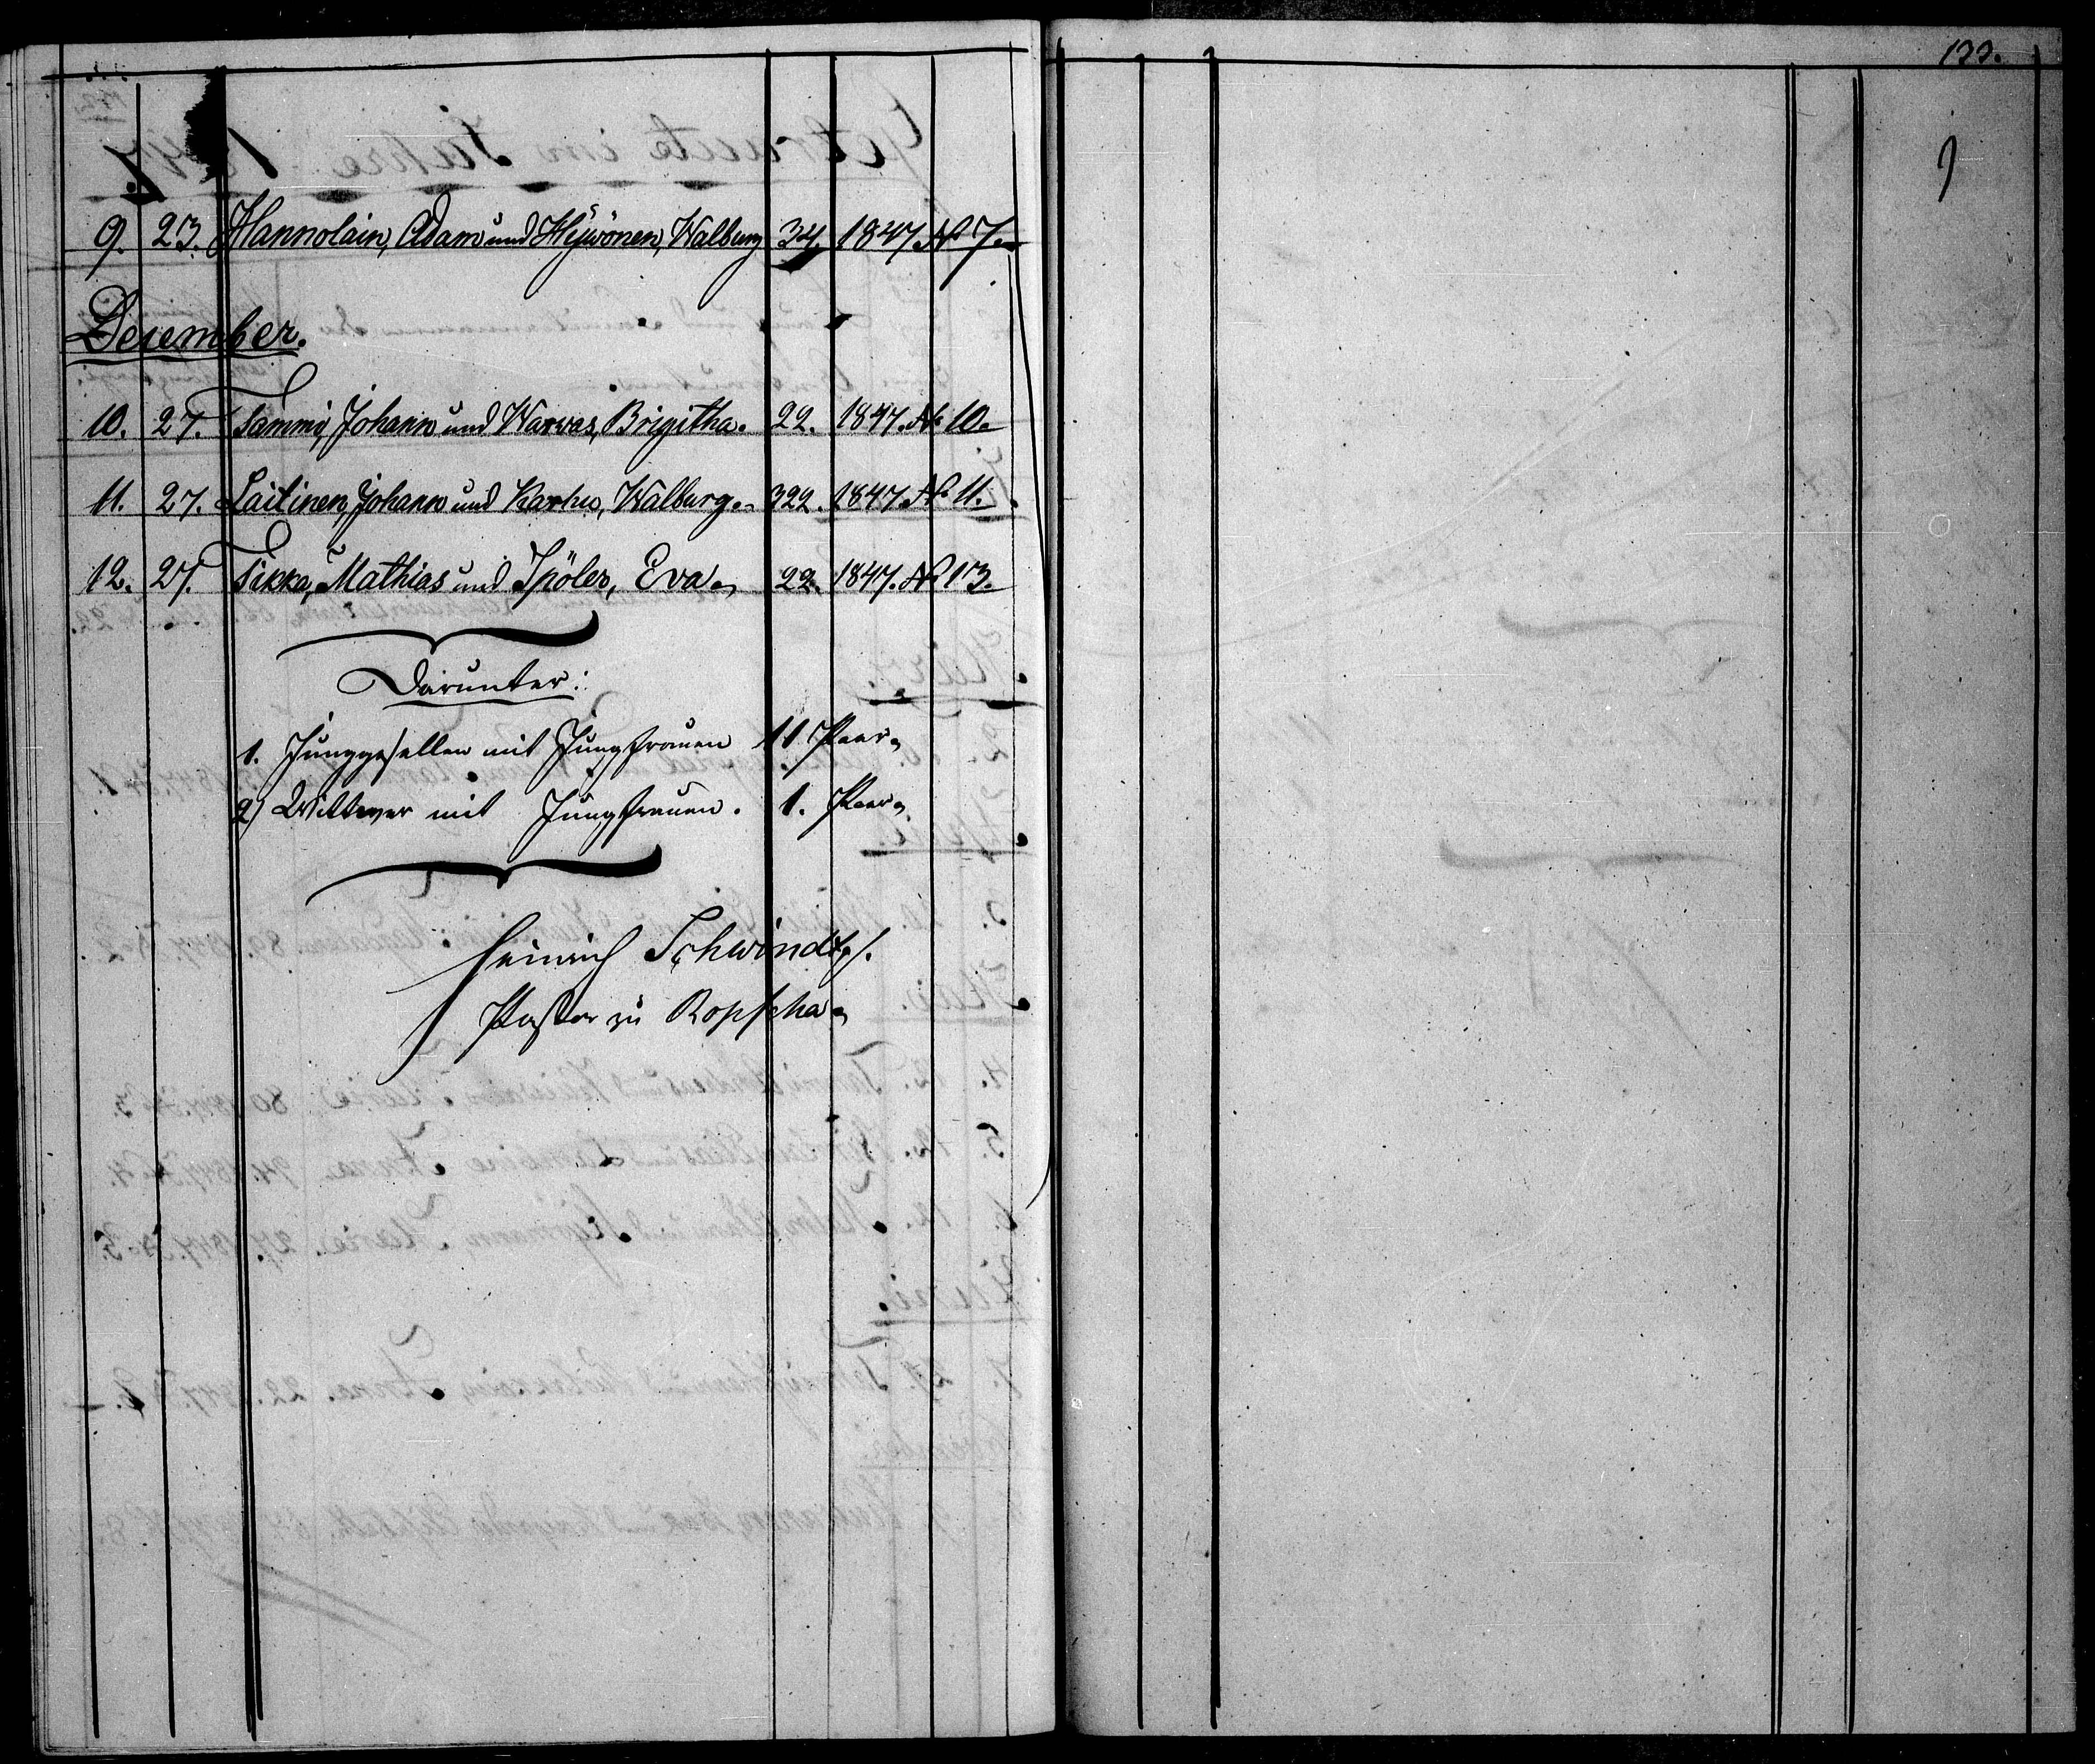 133.
9. 23. Hannolain, Adam und Hÿwönen, Walburg 34. 1847 № 7.
December.
10. 27. Tammi, Johann und Warwas, Brigitha. 22. 1847. № 10.
11. 27. Laitinen, Johann und Karhu, Walburg. 322. 1847. № 11.
12. 27. Tikka, Mathias und Ipöler, Eva. 22. 1847. № 13.
Darunter:
1. Junggesellen mit Jungfrauen 11 Paar.
2) Wittwer mit Jungfrauen. 1. Paar.
Heinrich Schwindt
Pastor zu Ropscha.